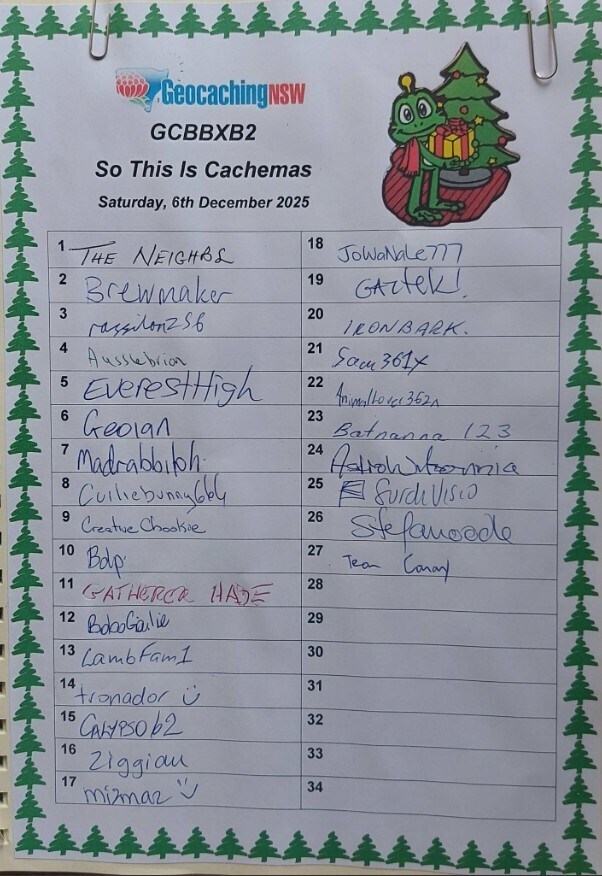 GeocachingNSW
GCBBXB2
So This Is Cachemas
Saturday, 6th December 2025
1 THE NEIGHBS
2 Brewmaker
3 rassilon256
4 Aussiebrian
5 EverestHigh
6 Geoian
7 Madrabbitoh
8 Curliebunny664
9 Creative Chookie
10 Bdp
11 GATHERER HADE
12 BoboGirlie
13 LambFam1
14 tronador
15 CALYPSO62
16 Ziggiau
17 mizmaz
18 JoWaNaLe777
19
20 IRONBARK.
21 Sam361x
22 Animallover362n
23 Batnanna 123
24
25
26
27 Team Canary
28
29
30
31
32
33
34